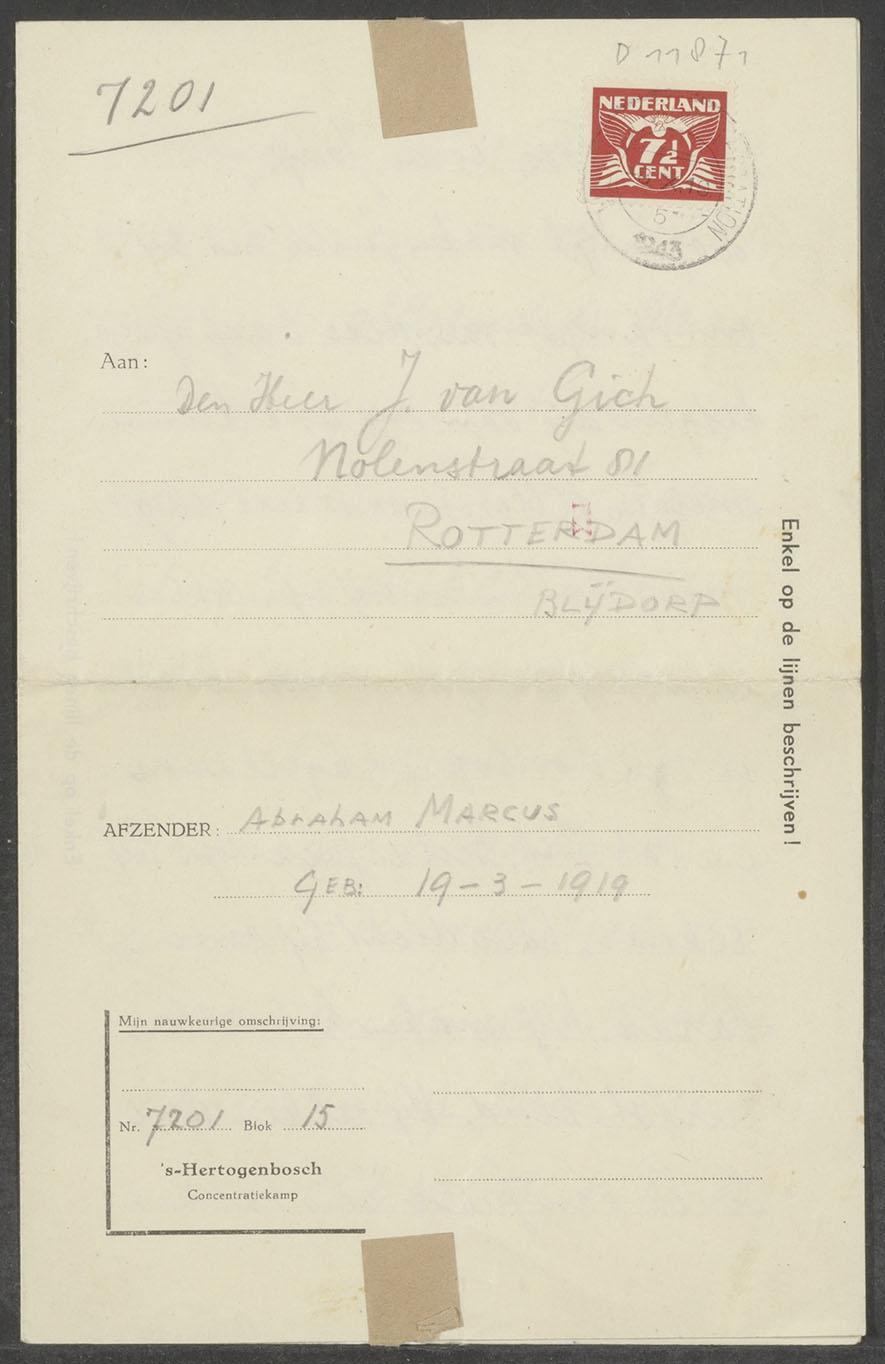 D 11871
7201
NEDERLAND
7½
CENT
5
1943
Aan:
Den Heer J. van Gich
Nolenstraat 81
ROTTERDAM
BLIJDORP
Enkel op de lijnen beschrijven!
AFZENDER: Abraham MARCUS
GEB: 19-3-1919
Mijn nauwkeurige omschrijving:
Nr. 7201 Blok 15
's-Hertogenbosch
Concentratiekamp